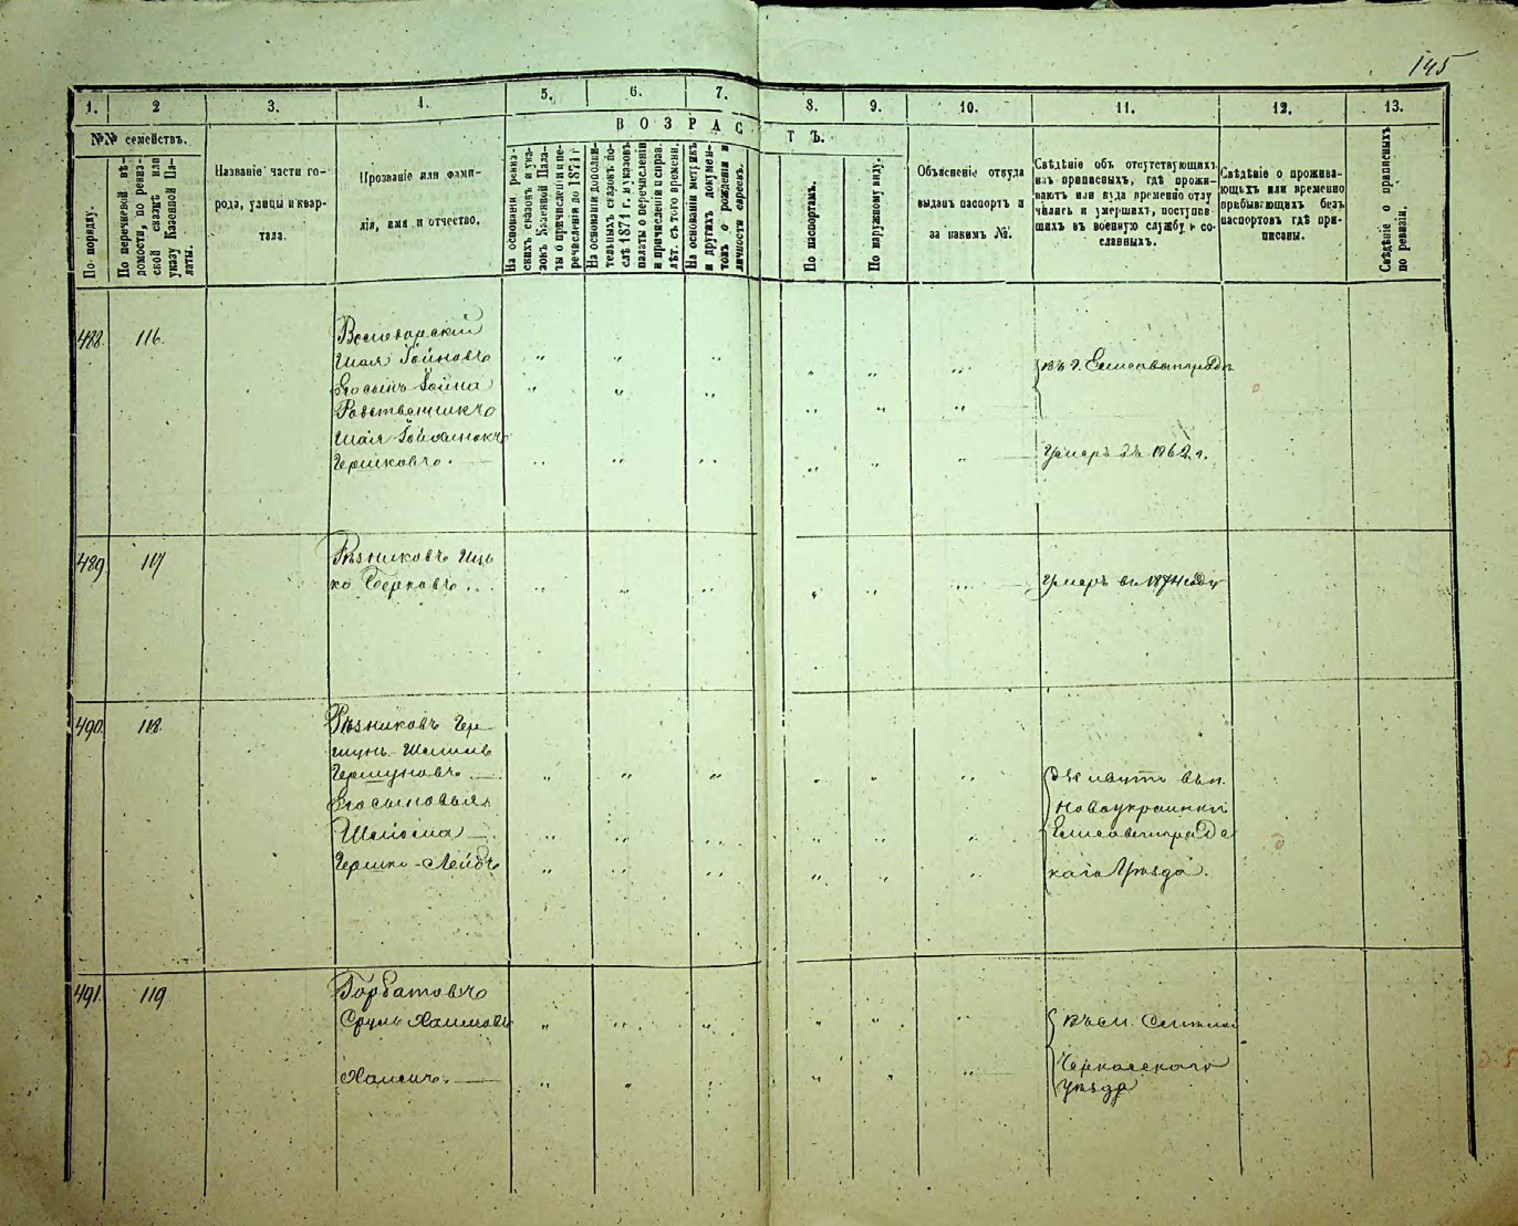 145
1. 2 3. 4. 5. 6. 7. 8. 9. 10. 11. 12. 13.
№№ семействъ.
ВОЗРАСТЪ.
По порядку.
По перечневой вѣ-
домости, по ревиз-
ской сказкѣ или
указу Казенной Па-
латы.
Названіе части го-
рода, улицы и квар-
тала.
Прозваніе или фами-
лія, имя и отчество.
На основаніи ревиз-
скихъ сказокъ и ука-
зовъ Казенной Пала-
ты о причисленіи и пе-
речисленіи до 1871 г.
На основаніи дополни-
тельныхъ сказокъ по-
слѣ 1871 г. и указовъ
палаты о перечисленіи
и причисленіи и справ.
лѣт. съ того времени.
На основаніи метрикъ
и другихъ докумен-
товъ о рожденіи и
личности евреевъ.
По паспортамъ.
По наружному виду.
Объясненіе откуда
выданъ паспортъ и
за какимъ №.
Свѣдѣніе объ отсутствующихъ
изъ приписныхъ, гдѣ прожи-
ваютъ или куда временно отлу
чились и умершихъ, поступив-
шихъ въ военную службу и со-
сланныхъ.
Свѣдѣніе о прожива-
ющихъ или временно
пребывающихъ безъ
паспортовъ гдѣ при-
писаны.
Свѣдѣніе о приписныхъ
по ревизіи.
488. 116.
Шая
Его сынъ
Родственникъ
Шая
Гершковъ.
въ г. Елисаветградѣ
Умеръ въ 1862 г.
489. 117
Рѣзниковъ Иць
ко Берковъ
Умеръ въ 1874 году
490. 118.
Рѣзниковъ Гер
шунъ
Гершуновъ
Его сыновья
Гершко-Лейбъ
Живутъ въ п.
Новоукраинки
Елисаветградс
каго Уѣзда.
491. 119
Горбатовъ
Сруль Хаимовъ
Хаимъ.
въ м.
Черкасскаго
уѣзда